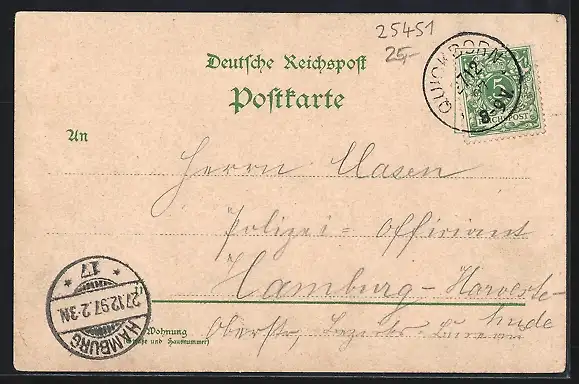 25451
25,-
Deutsche Reichspost
Postkarte
QUICKBORN
27/12
8-9N
5
REICHSPOST
An
Herrn Masen
Polizei = Offiziant
Hamburg - Harveste-
hude
Oberstr.
Wohnung
(Straße und Hausnummer)
HAMBURG
27.12.97.2-3N
* 17 *